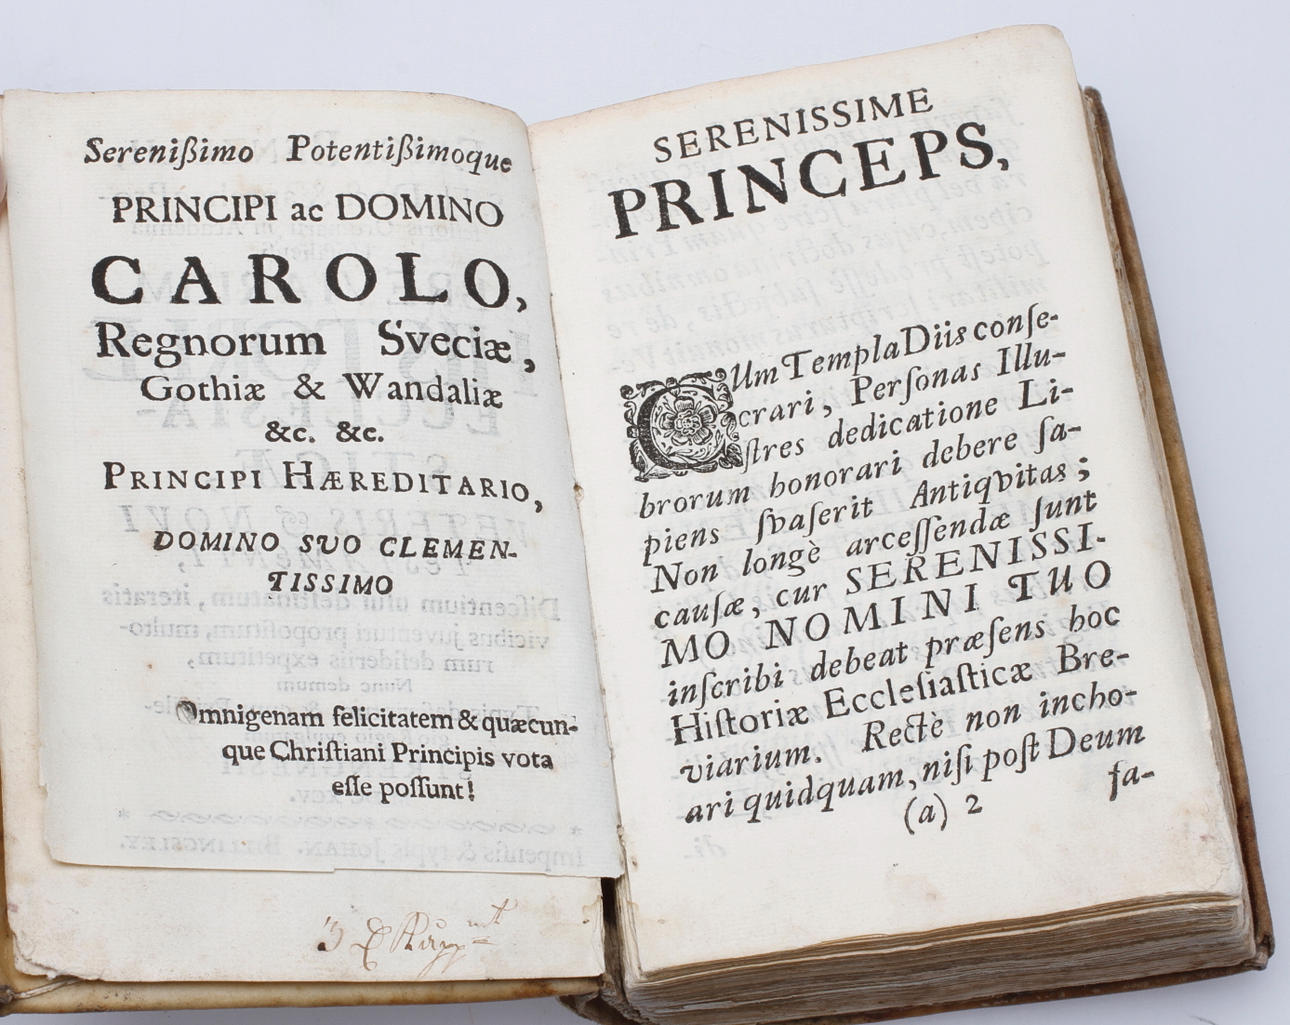 Serenißimo Potentißimoque
PRINCIPI ac DOMINO
CAROLO,
Regnorum Sveciæ,
Gothiæ & Wandaliæ
&c. &c.
PRINCIPI HÆREDITARIO,
DOMINO SVO CLEMEN-
TISSIMO
Omnigenam felicitatem & quæcun-
que Chriſtiani Principis vota
eſſe poſſunt!
SERENISSIME
PRINCEPS,
CUm Templa Diis conſe-
crari, Perſonas Illu-
ſtres dedicatione Li-
brorum honorari debere ſa-
piens ſvaſerit Antiqvitas;
Non longè arceſſendæ ſunt
cauſæ, cur SERENISSI-
MO NOMINI TUO
inſcribi debeat præſens hoc
Hiſtoriæ Eccleſiaſticæ Bre-
viarium. Rectè non incho-
ari quidquam, niſi poſt Deum
(a) 2 fa-